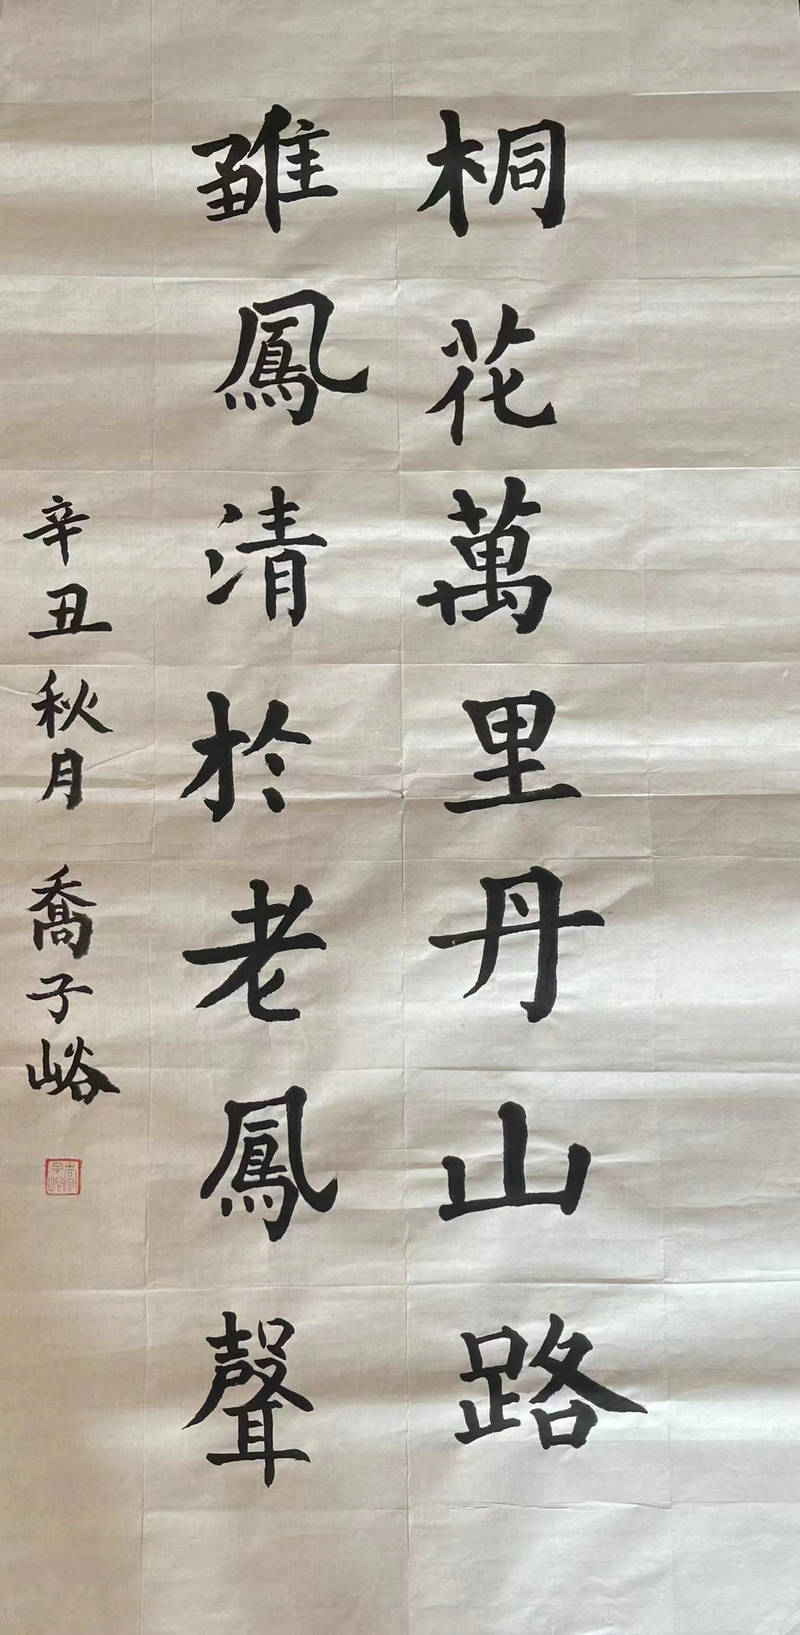 桐花萬里丹山路
雏鳳清於老鳳聲
辛丑秋月 喬子峪